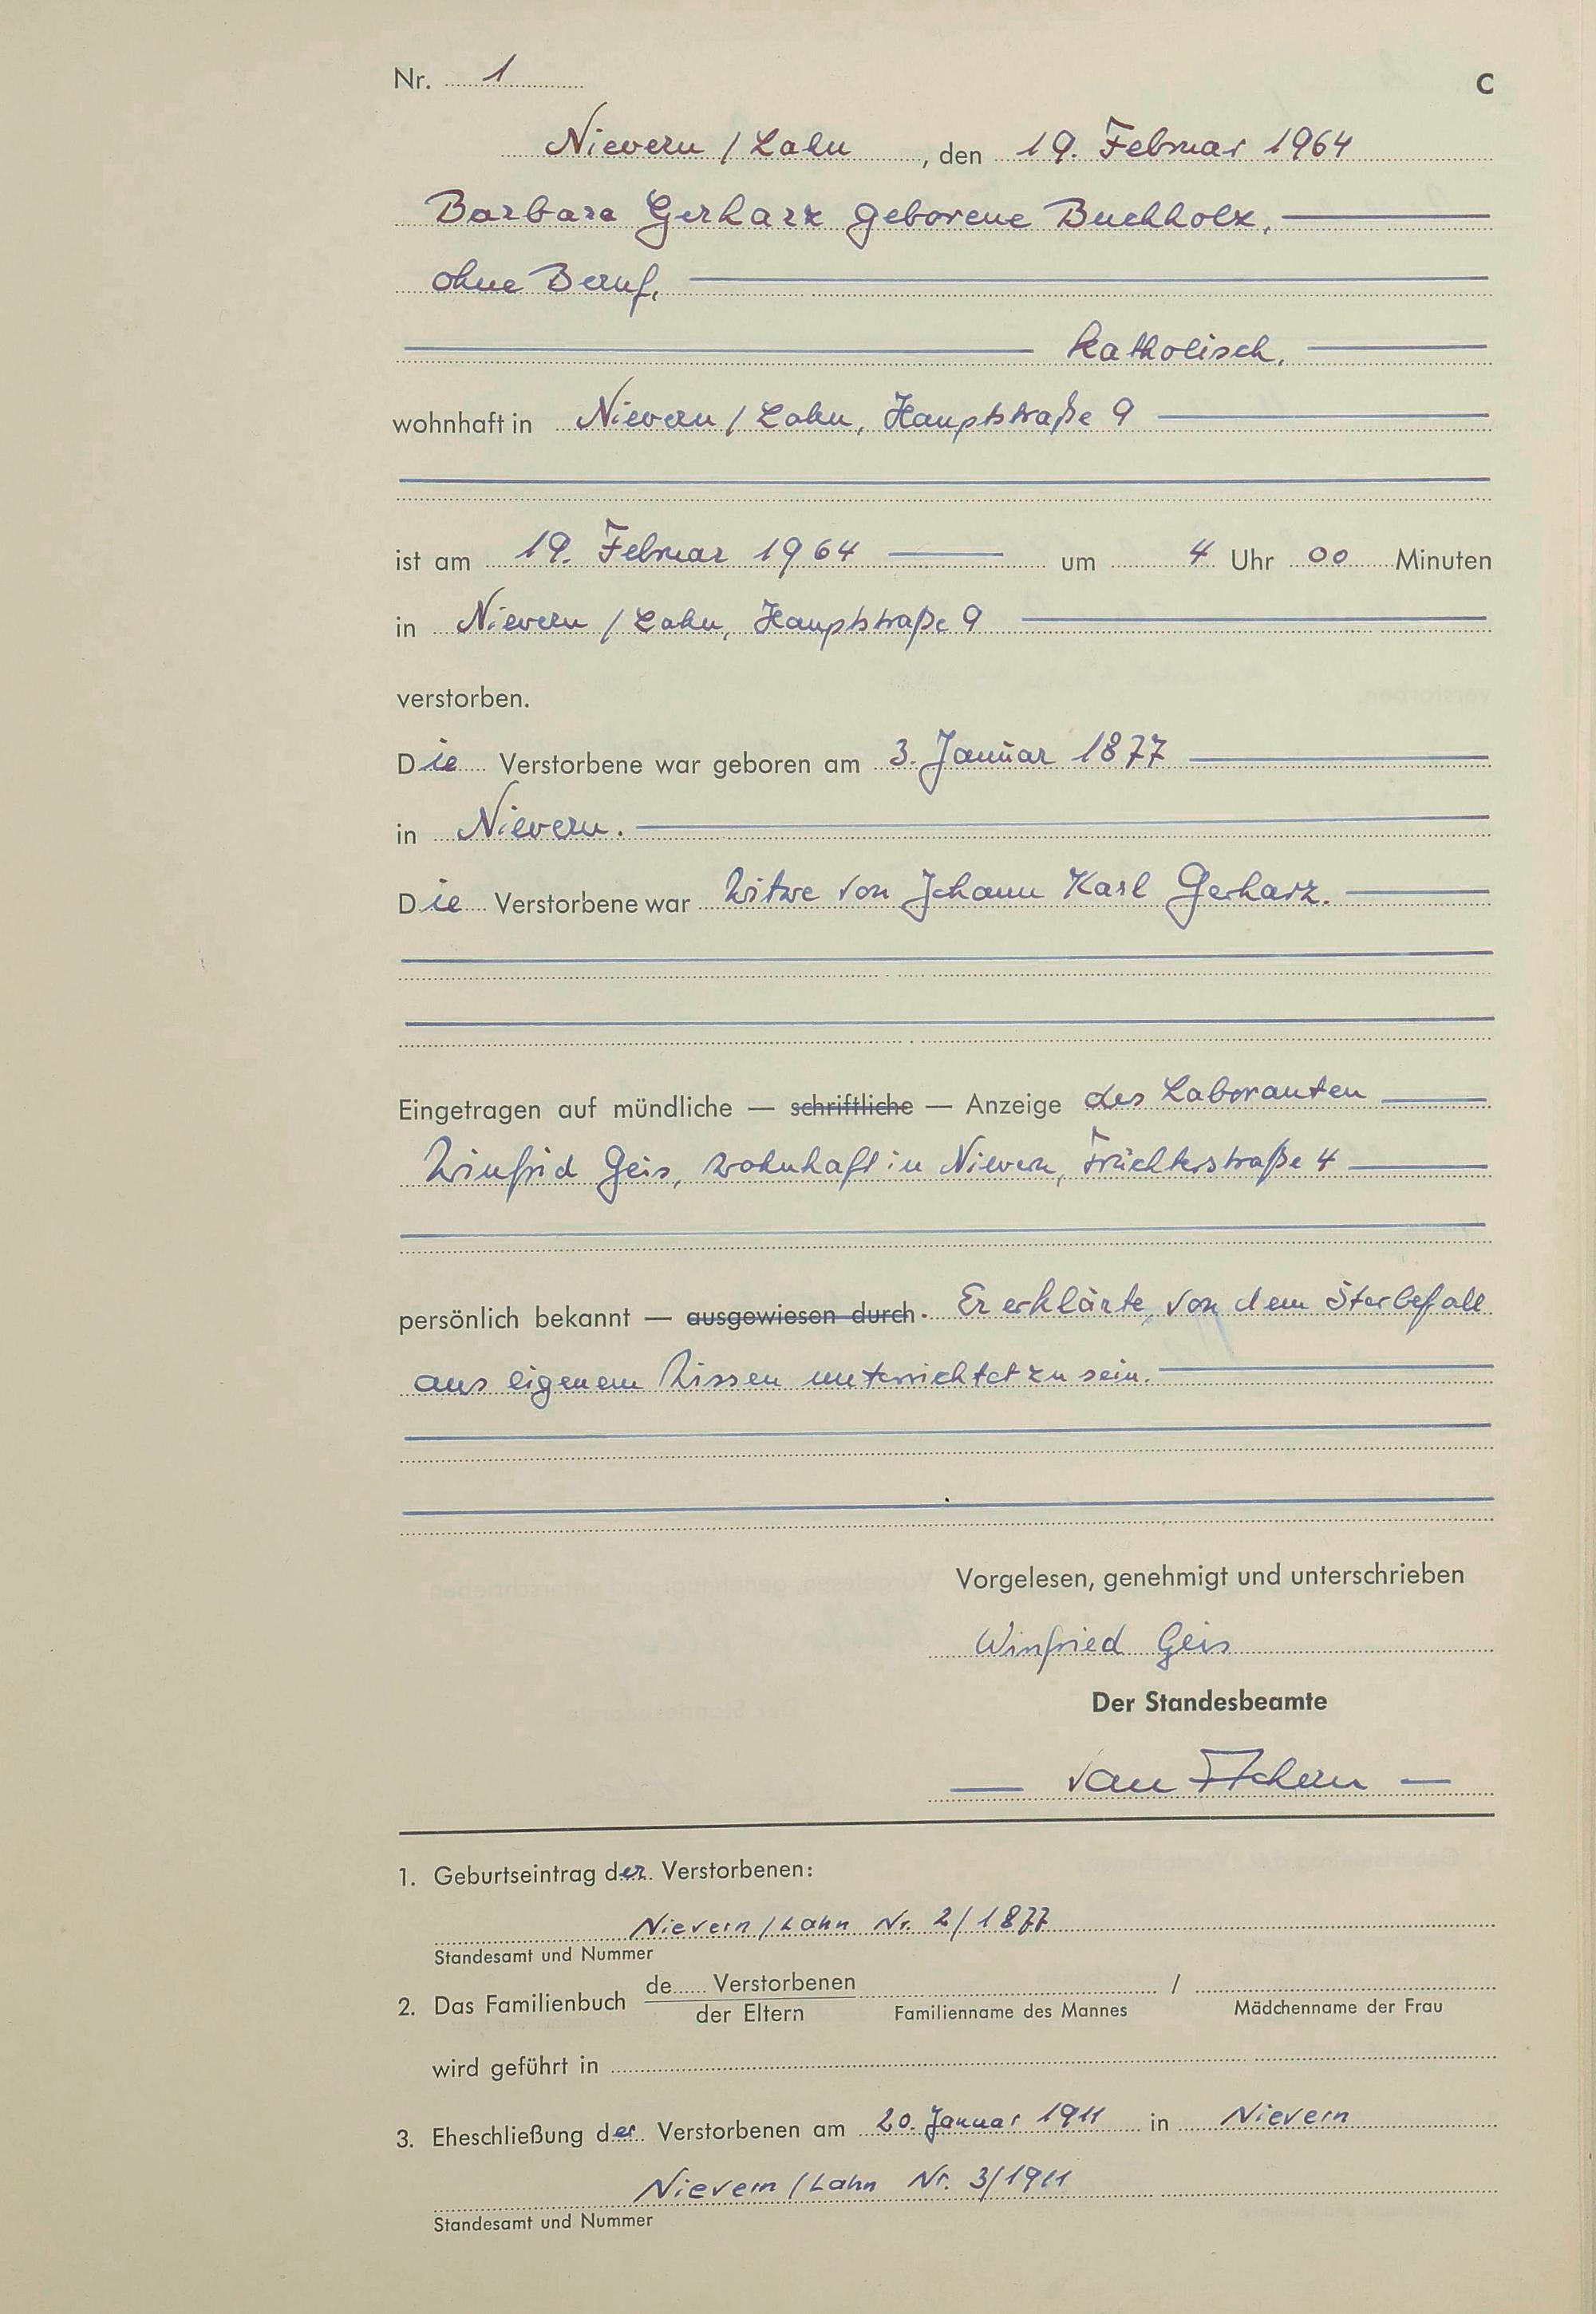 Nr. 1 C
Nievern / Lahn, den 19. Februar 1964
Barbara Gerharz geborene Buchholz,
ohne Beruf,
katholisch,
wohnhaft in Nievern / Lahn, Hauptstraße 9
ist am 19. Februar 1964 um 4 Uhr 00 Minuten
in Nievern / Lahn, Hauptstraße 9
verstorben.
Die Verstorbene war geboren am 3. Januar 1877
in Nievern.
Die Verstorbene war Witwe von Johann Karl Gerharz.
Eingetragen auf mündliche — schriftliche — Anzeige des Laboranten
Winfrid Geis, wohnhaft in Nievern, Früchterstraße 4
persönlich bekannt — ausgewiesen durch. Er erklärte, von dem Sterbefall
aus eigenem Wissen unterrichtet zu sein.
Vorgelesen, genehmigt und unterschrieben
Winfried Geis
Der Standesbeamte
— van —
1. Geburtseintrag der Verstorbenen:
Nievern / Lahn Nr. 2/1877
Standesamt und Nummer
2. Das Familienbuch de...... Verstorbenen / der Eltern
Familienname des Mannes Mädchenname der Frau
wird geführt in
3. Eheschließung der Verstorbenen am 20. Januar 1911 in Nievern
Nievern / Lahn Nr. 3/1911
Standesamt und Nummer